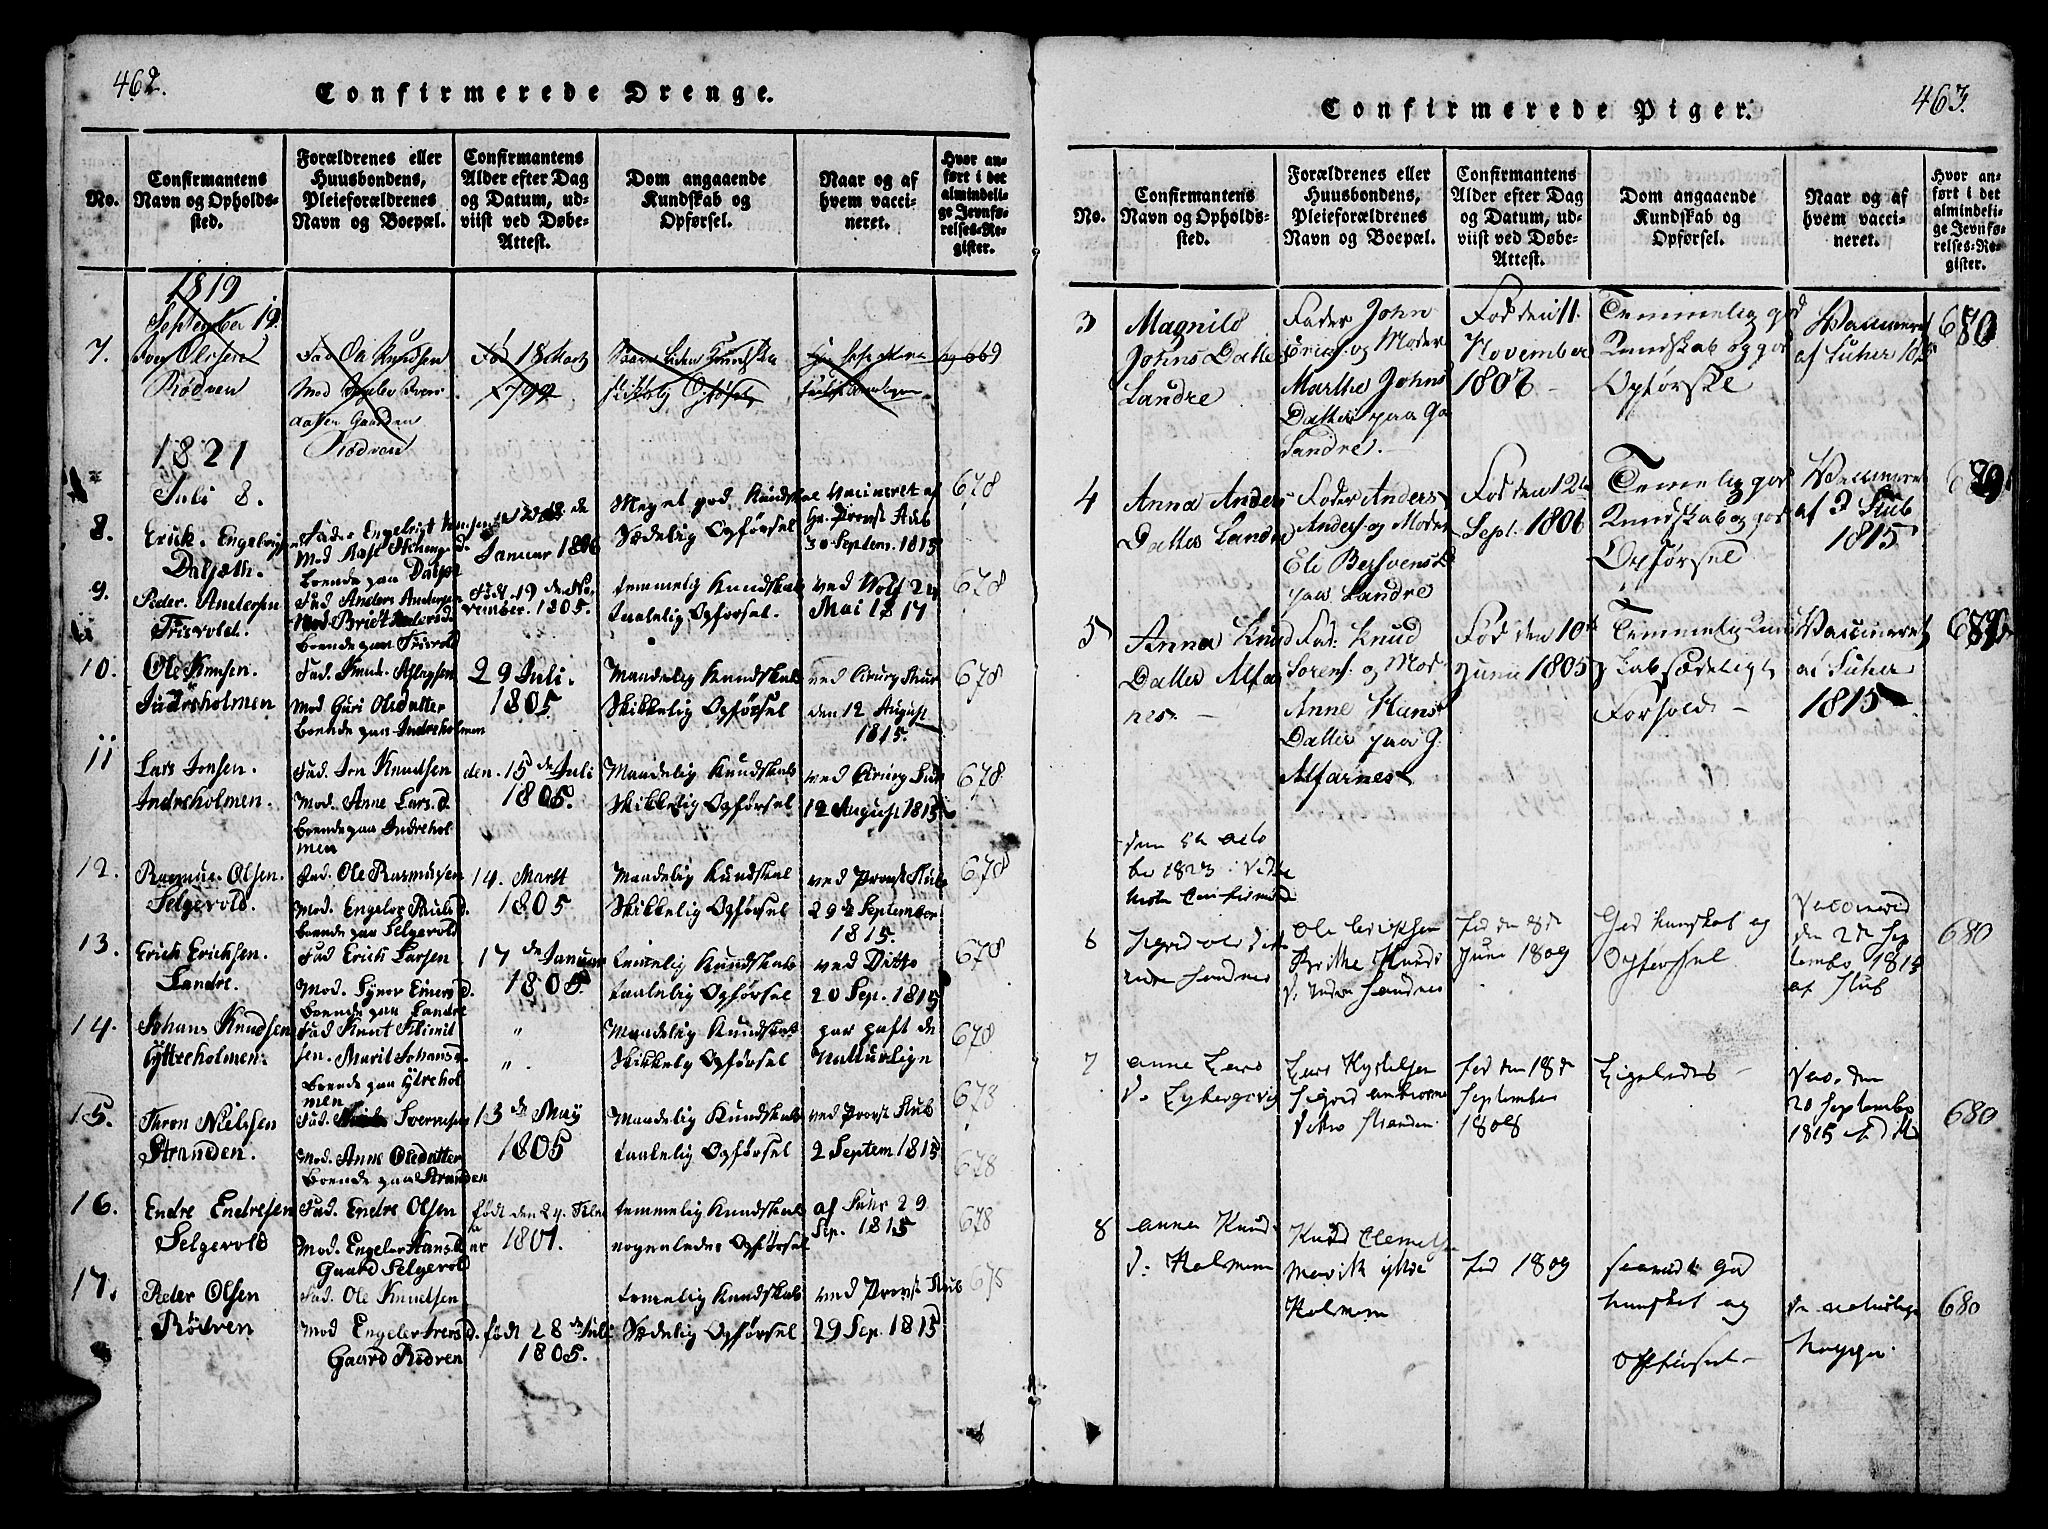 462.
Confirmerede Drenge.
No.
Confirmantens
Navn og Opholds-
sted.
Forældrenes eller
Huusbondens,
Pleieforældrenes
Navn og Boepæl.
Confirmantens
Alder efter Dag
og Datum, ud-
viist ved Døbe-
Attest.
Dom angaaende
Kundskab og
Opførsel.
Naar og af
hvem vacci-
neret.
Hvor an-
ført i det
almindeli-
ge Jevnfø-
relses-Re-
gister.
1819
September 19.
7.
Olesen
Rödven
Fad Ole Knudsen
Mod
Gaarden
Rödven
Fød 18 Marts
1799
669
1821
Juli 8.
8.
Erick. Engebrigtsen
Dalsæth.
Fader Engebrigt
Mod
boende paa
Januar 1806
Meget god Kundskab
Sædelig Opførsel
Vaccineret af
Hr. Provst Stub
30 Septem. 1815
678
9.
Peder. Andersen
Frisvold.
Fad Anders Andersen
Mod Briet Anders d.
boende paa Frisvold
Født. 19 de No-
vember. 1805.
temmelig Kundskab
taalelig Opførsel.
ved Wolf 24
Mai 1817
678
10.
Ole Knudsen.
Indreholmen
Fad. Knud Aslagsen
Mod Guri Olsdatter
boende paa Indreholmen
29 Juli.
1805.
Maadelig Kundskab
Skikkelig Opførsel
ved Cirurg Stub
den 12 August
1815.
678
11
Lars Jonsen.
Indreholmen.
Fad. Jon Knudsen
Mod. Anne Lars. d
boende paa Indrehol
men
den. 15 de Juli
1805.
Maadelig Kundskab
Skikkelig Opførsel
ved Cirurg Stub
12 August 1815
678
12.
Rasmus. Olsen.
Selgevold.
Fad. Ole Rasmusen
Mod. Engeler Pauls d.
boende paa Selgevold
14. Martt
1805
Maadelig Kundskab
Skikkelig Opførsel
ved Provst Stub
29 de September
1815.
678
13.
Erich Erichsen.
Landre.
Fad Erich Larsen
Mod. Synor Einers d.
boende paa Landre
17 de Januar
1805.
temelig Kundskab
taalelig Opførsel
ved Ditto
20 Sep. 1815
678
14.
Johans Knudsen
Yttreholmen.
Fad Knut Klimit
sen. Marit Johans d.
boende paa Ytrehol
men
"
"
Maadelig Kundskab
Skikkelig Opførsel
har haft de
Naturlige
678
15.
Thron Nielsen
Stranden.
Fad. Svernesen
Mod. Anne Olsdatter
boende paa Stranden
13 de May
1805
Maadelig Kundskab
taalelig Opførsel
ved Provst Stub
2 Septem 1815
678
678
16.
Endre Endresen
Selgevold
Fad. Endre Olsen
Mod. Engeler Hans d.
Gaard Selgevold
født den 24. Febru
ar 1801.
temmelig Kundskab
nogenledes Opførsel
af Suhr 29
Sep. 1815
678
17.
Peter Olsen
Rödven
Fad. Ole Knudsen
Mod Engeler Ivers d.
Gaard Rödven
født 28 de Juli
1805.
temelig Kundskab
Sædelig Opførsel
ved Provst Stub
29 Sep. 1815
675
463.
Confirmerede Piger.
No.
Confirmantens
Navn og Opholds-
sted.
Forældrenes eller
Huusbondens,
Pleieforældrenes
Navn og Boepæl.
Confirmantens
Alder efter Dag
og Datum, ud-
viist ved Døbe-
Attest.
Dom angaaende
Kundskab og
Opførsel.
Naar og af
hvem vacci-
neret.
Hvor an-
ført i det
almindeli-
ge Jevnfø-
relses-Re-
gister.
3
Magnild
Johns Datter
Landre
Fader John
og Moder
Marthe Johns
Datter paa G
Landre.
Fød den 11.
November
1806
Temmelig god
Kundskab og god
Opførske
Vaccineret
af Suher 1815
680
4
Anna Anders
Datter Landre
Fader Anders
Anders. og Moder
Eli Bersvens D
paa Landre
Fød den 12te
Sept. 1806
Temelig god
Kundskab og god
Opførsel
Vaccineret
af P Stub
1815
679
5
Anna Knud
Datter Alfar
nes.
Fad. Knud
Sørens. og Mod-
Anne Hans
Datter paa G.
Alfarnes
Fød den 10de
Junii 1805
Temmelig Kund
skab sædeligt
Forhold
Vaccineret
af Suher
1815
679
den 5te octo
ber 1823 i Vedøe
kirke Confirmerede
6
Sigrid ols datter
indre Sandnes
Ole Erichsen
Brithe Knuds
d. Indre Sandnes
fød den 8de
Juni 1809
God kunskab og
Opførsel
Vaccinered
den 2de Sep
tember 1815
af Stub
680
7
anne Lars
d. Lybergsvig
Lars Kystelsen
Sigrid anbiorns
datter Stranden
fød den 18de
September
1808
Ligeledes
Vac. den
20 September
1815 af
680
8
anne Knud
d. Holmen
Knud Clemetsen
Marith ytre
Holmen
fød 1809
god
kunskab og
Opførsel
de naturlige
kopper.
680